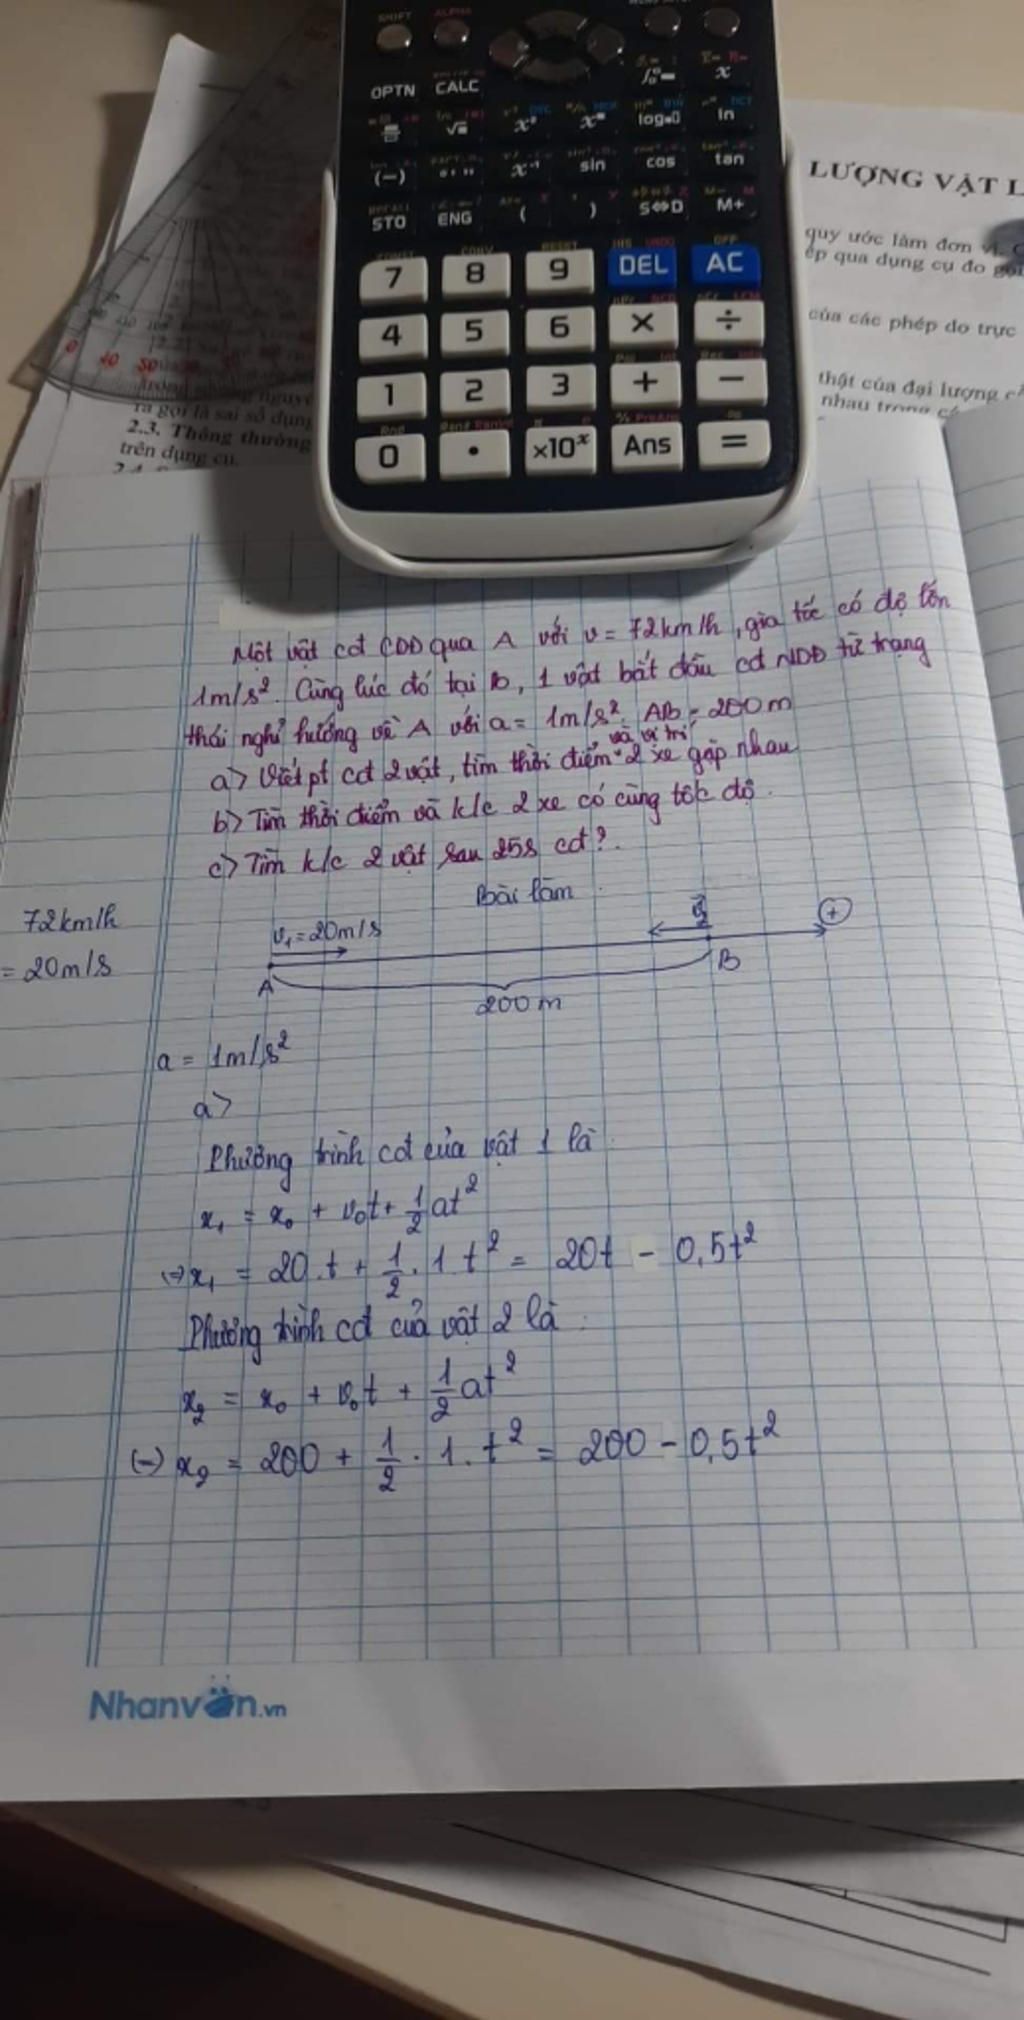 SHIFT ALPHA
OPTN CALC x
x² log ln
(-) sin cos tan
STO ENG ( ) S⇔D M+
7 8 9 DEL AC
4 5 6 × ÷
1 2 3 + −
0 • ×10ˣ Ans =
LƯỢNG VẬT L
quy ước làm đơn vị.
ép qua dụng cụ đo gọi
của các phép đo trực
thật của đại lượng
nhau trong
ra gọi là sai số dụng
2.3. Thông thường
trên dụng cụ.
Một vật cđ CDĐ qua A với v = 72km/h, gia tốc có độ lớn
1m/s². Cùng lúc đó tại B, 1 vật bắt đầu cđ NDĐ từ trạng
thái nghỉ hướng về A với a = 1m/s². AB = 200m
a> Viết pt cđ 2 vật, tìm thời điểm và vị trí 2 xe gặp nhau
b> Tìm thời điểm và k/c 2 xe có cùng tốc độ.
c> Tìm k/c 2 vật sau 25s cđ?.
Bài làm
72km/h
= 20m/s
v₁ = 20m/s
+
A
B
200m
a = 1m/s²
a>
Phương trình cđ của vật 1 là
x₁ = x₀ + v₀t + 1/2 at²
(=) x₁ = 20.t + 1/2 . 1 t² = 20t - 0,5t²
Phương trình cđ của vật 2 là :
x₂ = x₀ + v₀t + 1/2 at²
(=) x₂ = 200 + 1/2 . 1. t² = 200 - 0,5t²
Nhanvăn.vn